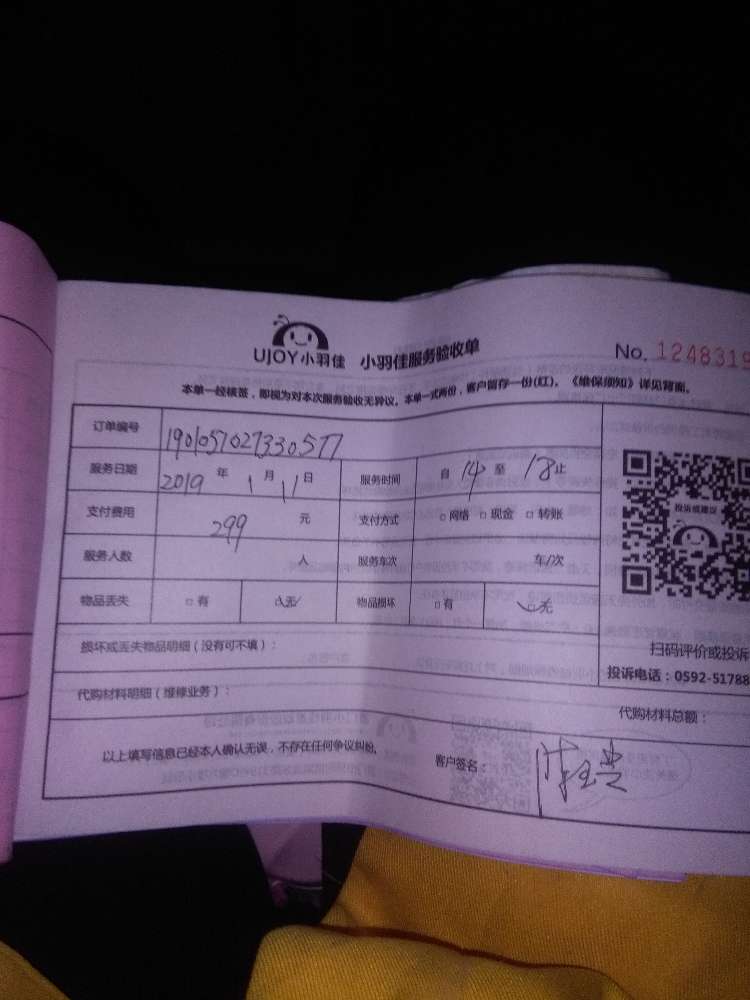 UJOY小羽佳 小羽佳服务验收单 No. 1248319
本单一经核签，即视为对本次服务验收无异议。本单一式两份，客户留存一份(红)。《维保须知》详见背面。
订单编号 190105702733057
服务日期 2019 年 1 月 11 日 服务时间 自 14 至 18 止
支付费用 299 元 支付方式 □网络 □现金 □转账
服务人数 人 服务车次 车/次
物品丢失 □有 □无 物品损坏 □有 □无
投诉或建议
损坏或丢失物品明细（没有可不填）：
扫码评价或投诉
投诉电话：0592-51788
代购材料明细（维修业务）：
代购材料总额：
以上填写信息已经本人确认无误，不存在任何争议纠纷。 客户签名：